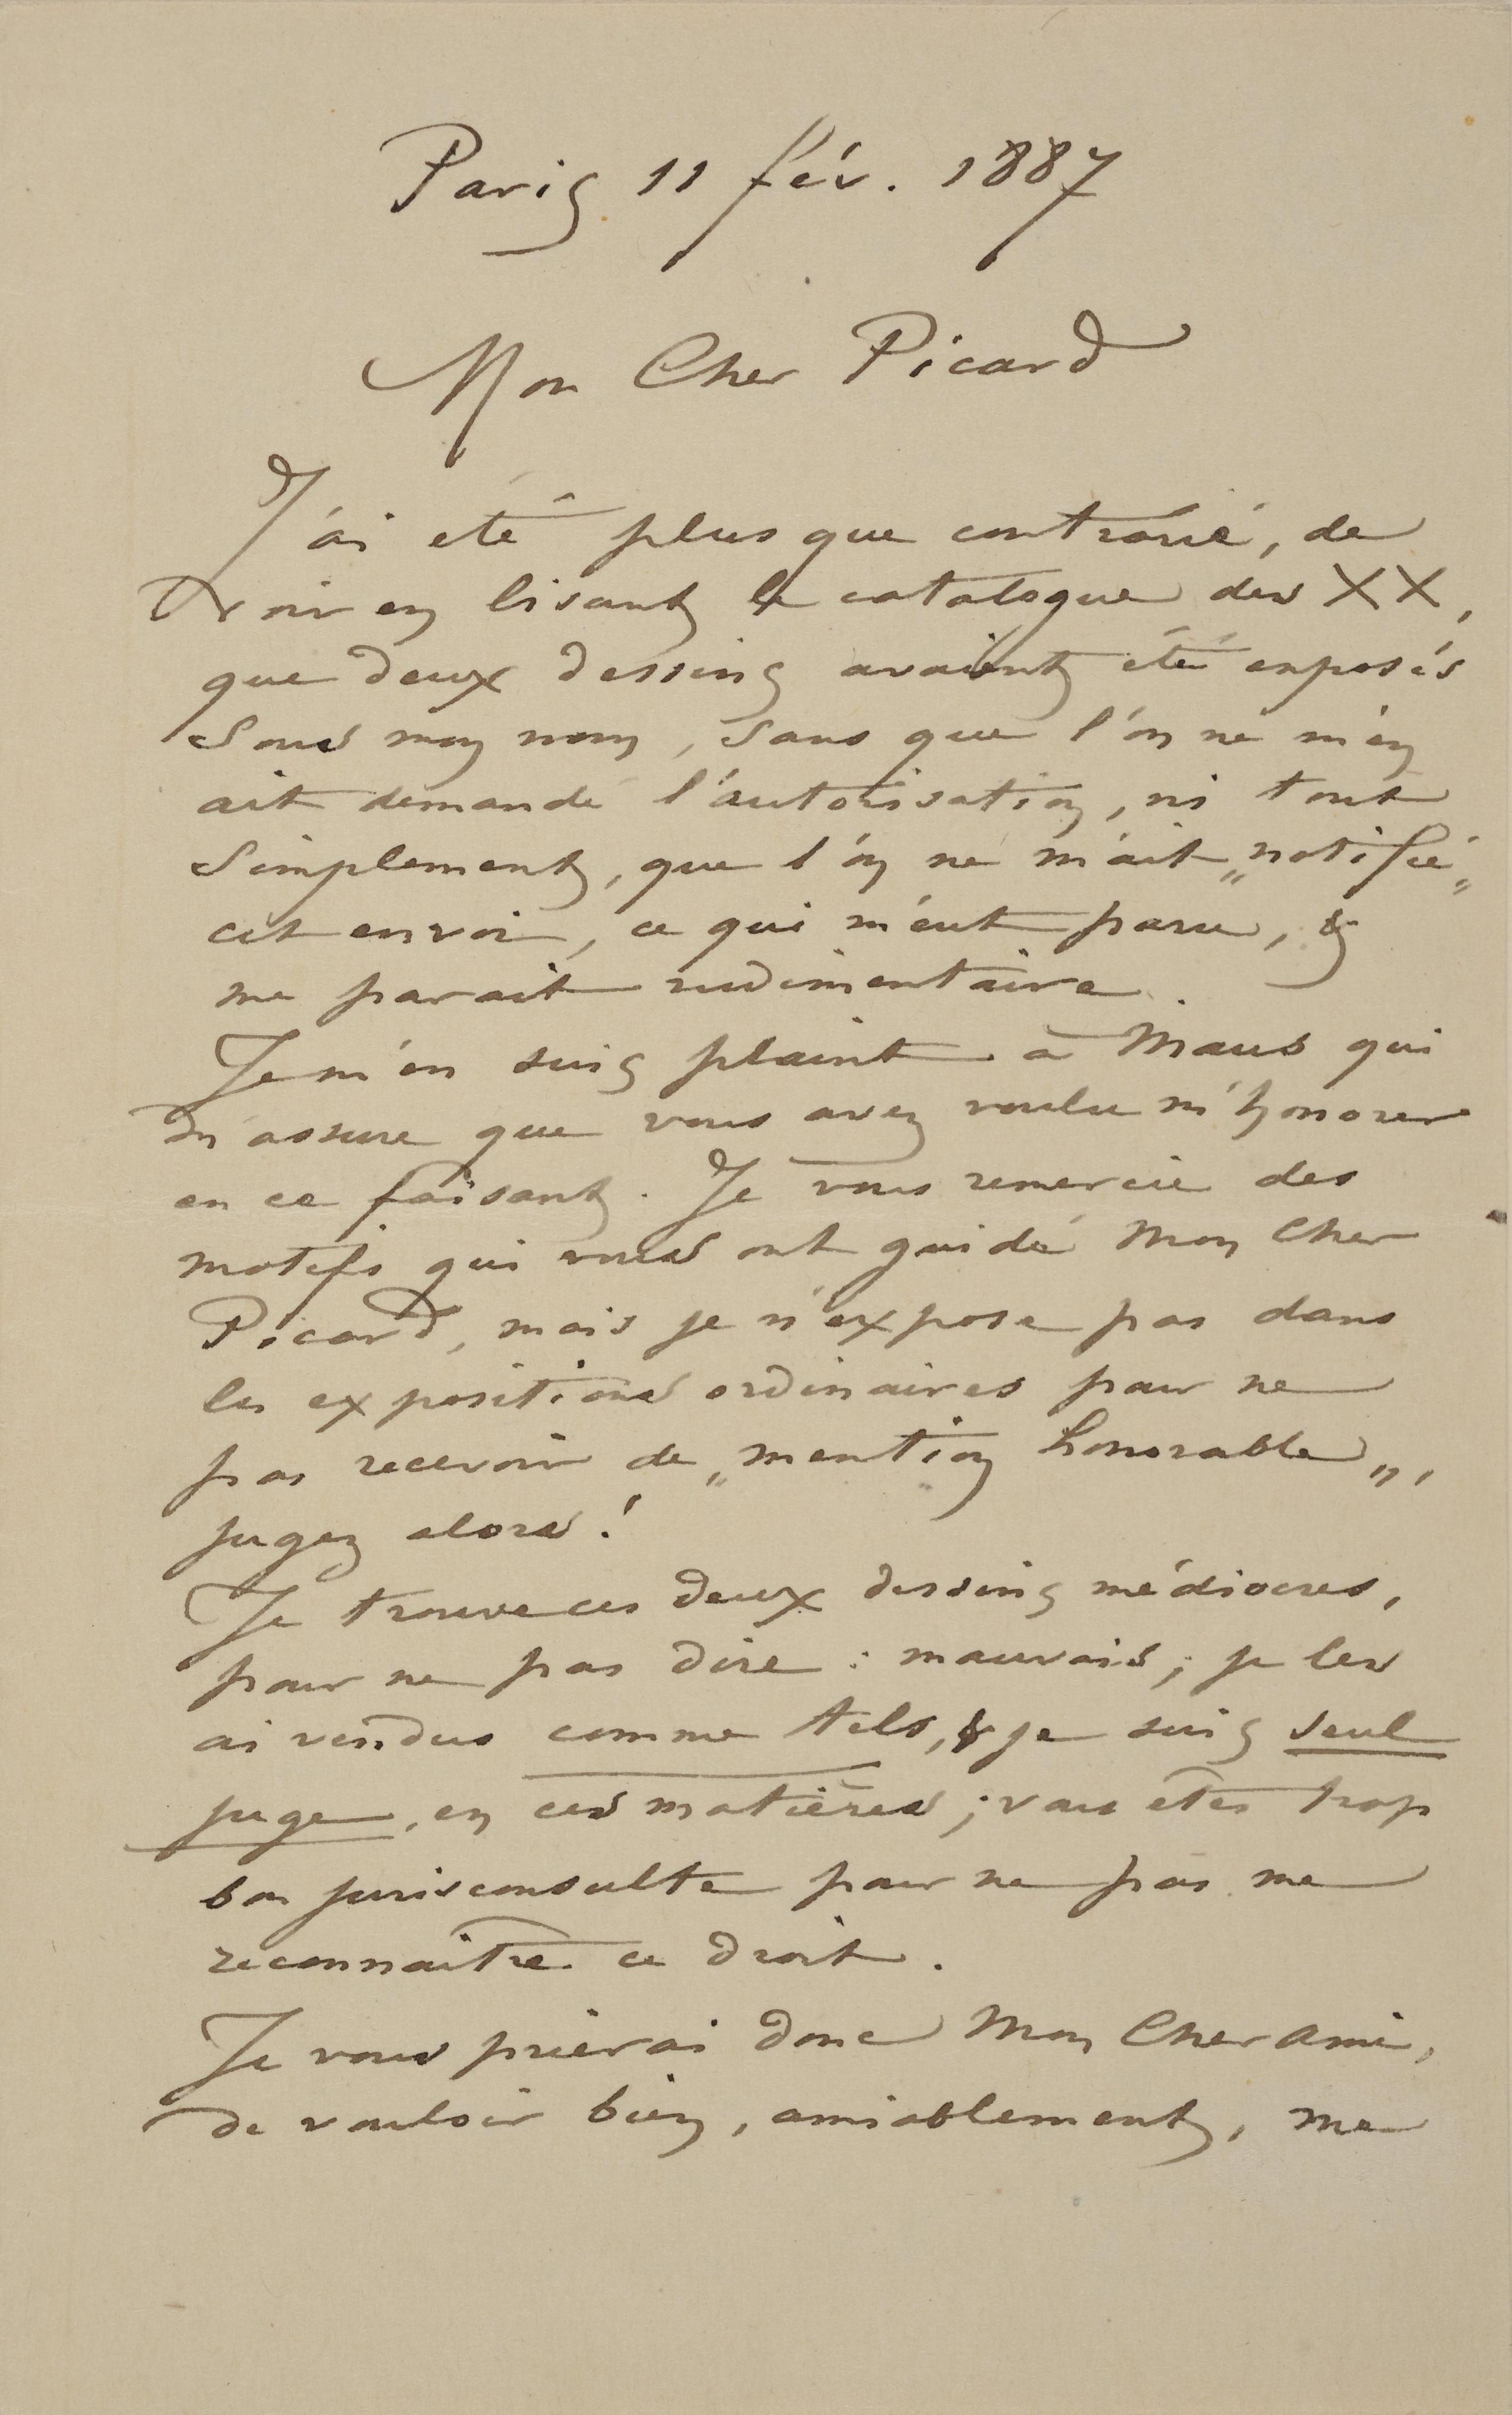 Paris 11 fév. 1887
Mon Cher Picard
J'ai été plus que contrarié, de
voir en lisant le catalogue des XX,
que deux dessins avaient été exposés
Sous mon nom, Sans que l'on ne m'en
ait demandé l'autorisation, ni tout
Simplement, que l'on ne m'ait „notifié„
cet envoi, ce qui m'eut paru, &
me parait rudimentaire.
Je m'en suis plaint à Maus qui
m'assure que vous avez voulu m'honorer
en ce faisant. Je vous remercie des
motifs qui vous ont guidé Mon Cher
Picard, mais je n'expose pas dans
les expositions ordinaires pour ne
pas recevoir de „mention honorable„,
jugez alors!
Je trouve ces deux dessins médiocres,
pour ne pas dire : mauvais; je les
ai vendus comme tels, & je suis seul
juge, en ces matières; vous êtes trop
bon jurisconsulte pour ne pas me
reconnaître ce droit.
Je vous prierai donc Mon Cher ami,
de vouloir bien, amiablement, me